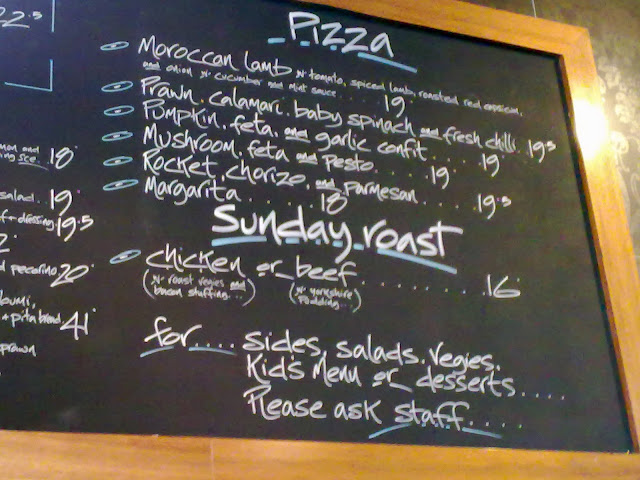 22.5
Pizza
Moroccan lamb w tomato, spiced lamb, roasted red capsicum,
and onion w cucumber and mint sauce.....19
Prawn, calamari, baby spinach and fresh chilli..19.5
Pumpkin, feta, and garlic confit.....19
Mushroom, feta and pesto.....19
Rocket, chorizo, and parmesan.....19.5
Margarita.....18
Sunday roast
chicken or beef........16
(w roast vegies and (w yorkshire
bacon stuffing...) Pudding...)
for.... sides, salads, vegies,
Kid's Menu or desserts....
Please ask staff....
and
rice 18
salad..19
+ dressing 19.5
pecorino 20
+ pita bread 41
prawn